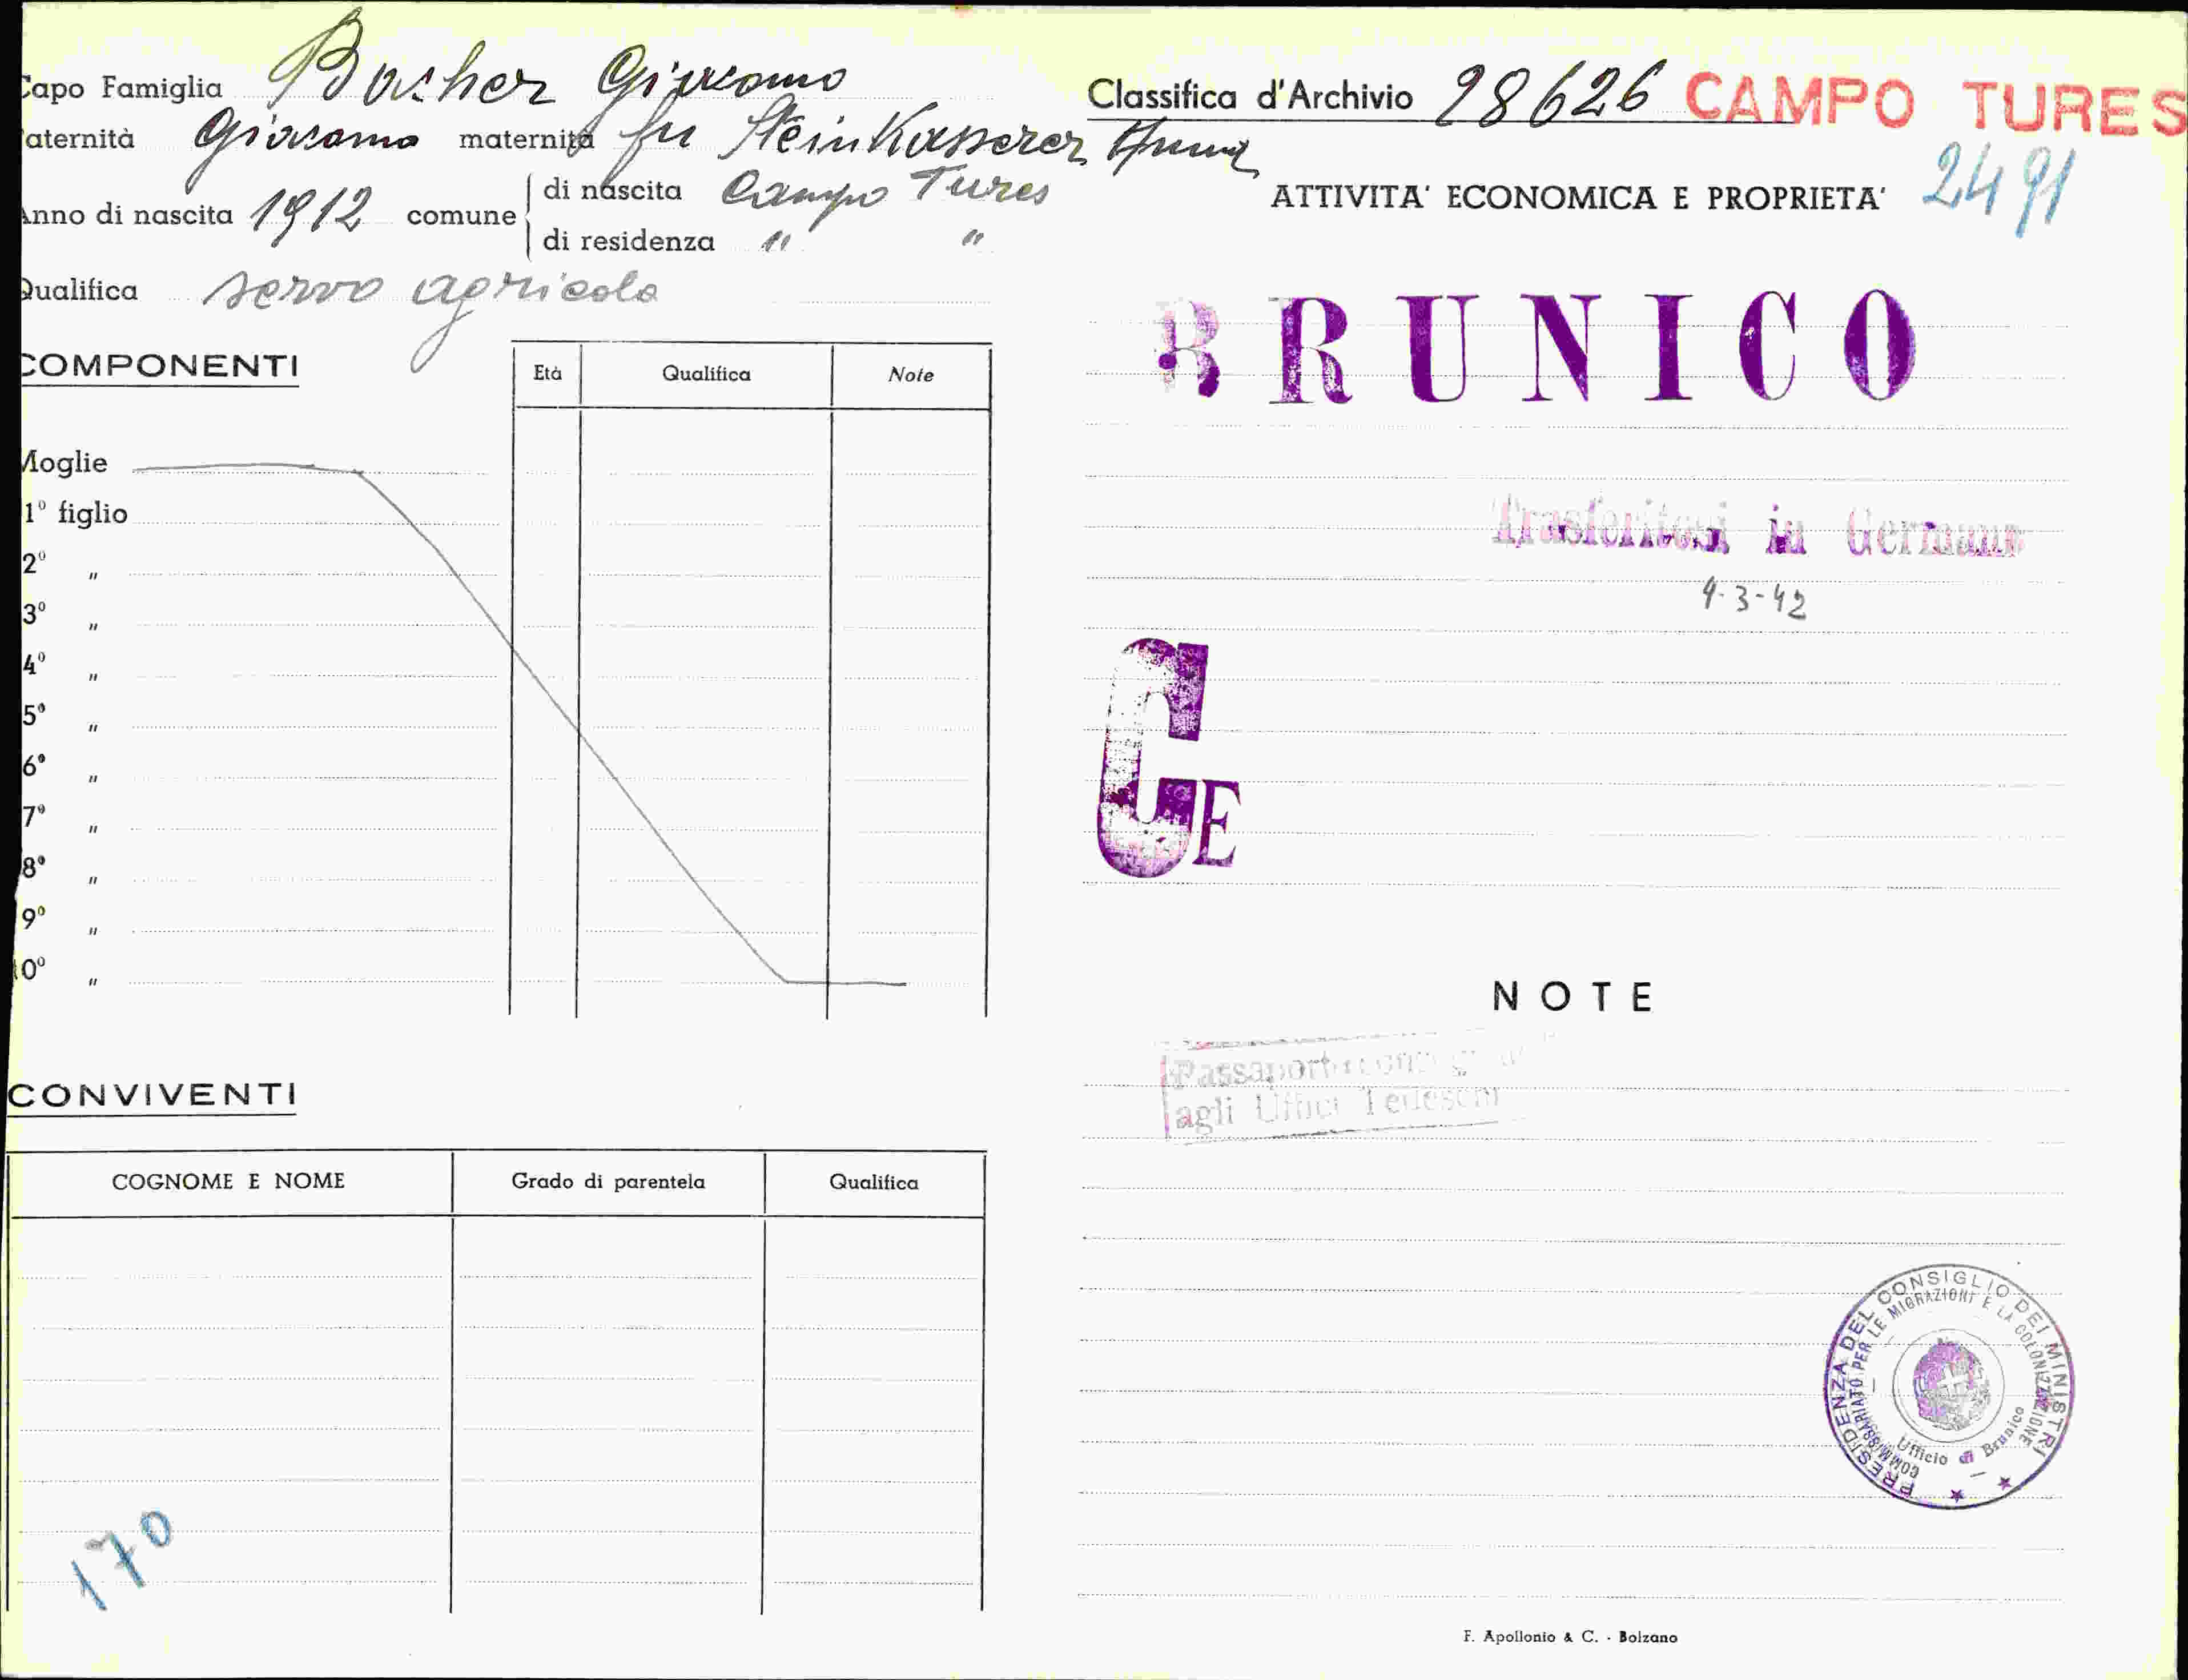 Capo Famiglia Bacher Giacomo
Paternità Giacomo maternità fu Steinkasserer Anna
Anno di nascita 1912 comune
di nascita Campo Tures
di residenza " "
Qualifica servo agricolo
COMPONENTI
Età Qualifica Note
Moglie
1º figlio
2º "
3º "
4º "
5º "
6º "
7º "
8º "
9º "
10º "
CONVIVENTI
COGNOME E NOME Grado di parentela Qualifica
170
Classifica d'Archivio 28626 CAMPO TURES
ATTIVITA' ECONOMICA E PROPRIETA' 2491
BRUNICO
Trasferitosi in German
9-3-42
G E
NOTE
agli Uffici Tedeschi
PRESIDENZA DEL CONSIGLIO DEI MINISTRI
COMMISSARIATO PER LE MIGRAZIONI E LA COLONIZZAZIONE
Ufficio di Brunico
F. Apollonio & C. - Bolzano